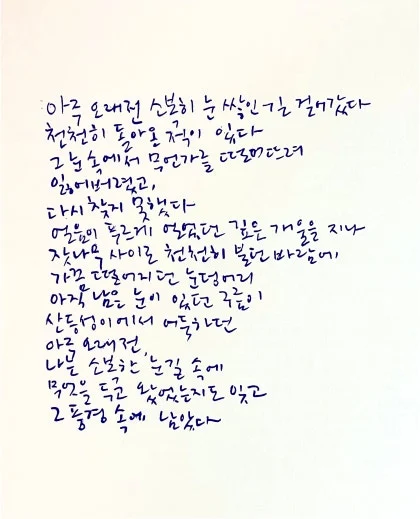 아주 오래전 소복히 눈 쌓인 길 걸어갔다
천천히 돌아온 적이 있다
그 눈 속에서 무언가를 떨어뜨려
잃어버렸고,
다시 찾지 못했다
얼음이 푸르게 얼었던 깊은 개울을 지나
잣나무 사이로 천천히 불던 바람에,
가끔 떨어지던 눈덩어리
아직 남은 눈이 있던 구름이
산등성이에서 어둑하던
아주 오래전,
나는 소복한 눈길 속에
무엇을 두고 왔었는지도 잊고
그 풍경 속에 남았다